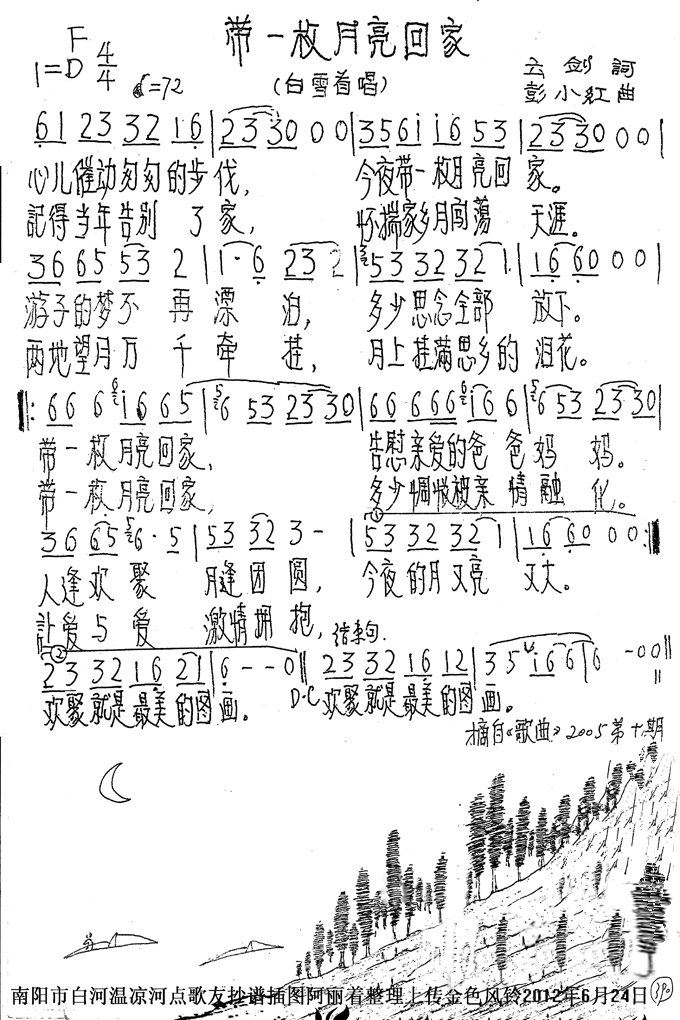 带一枚月亮回家
(白雪首唱)
F
1=D 4/4
=72
云剑詞
彭小紅曲
61 23 32 16 | 2330 0 0 | 356i i6 53 | 2330 0 0 |
心儿催动匆匆的步伐， 今夜带一枚月亮回家。
記得当年告别了家， 怀揣家乡月闯荡天涯。
36 65 53 2 | 1· 6 23 2 | 53 32 32 1 | 16 60 0 0 |
游子的梦不再漂泊， 多少思念全部放下。
两地望月万千牵挂， 月上挂满思乡的泪花。
66 6 i 6 65 | 6 53 23 30 | 66 666 i6 6 | 6 53 23 30 |
带一枚月亮回家， 告慰亲爱的爸爸妈妈。
带一枚月亮回家， 多少惆怅被亲情融化。
36 65 6· 5 | 53 32 3 - | 53 32 32 1 | 16 60 0 0 :
人逢欢聚月逢团圆， 今夜的月又亮又大。
訁上爱与爱激情拥抱，
结束句.
23 32 16 21 | 6 - - 0 || D.C 23 32 16 12 | 3 5 i6 6 | 6 - 0 0 ||
欢聚就是最美的图画。 欢聚就是最美的图画。
摘自《歌曲》2005第十期
南阳市白河温凉河点歌友抄谱插图阿丽着整理上传金色风铃2012年6月24日
390